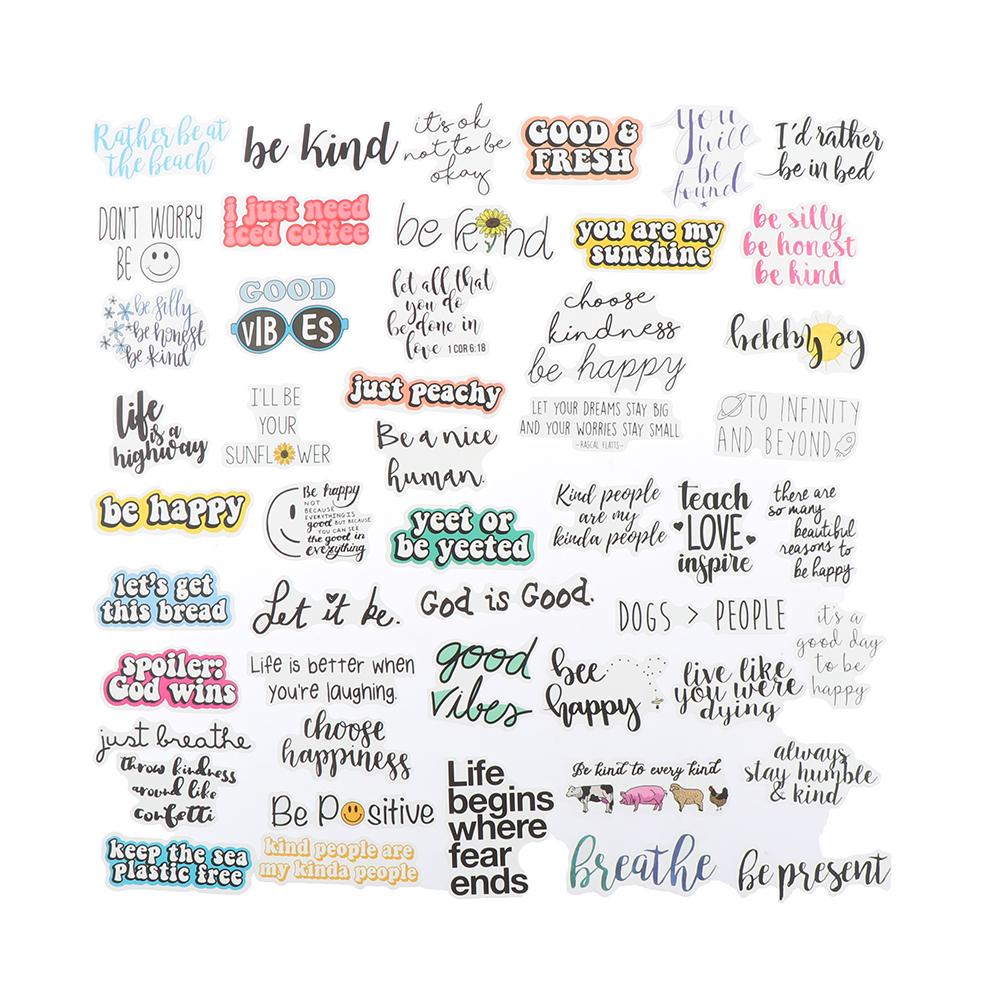 Rather be at
the beach
be kind
it's ok
not to be
okay
GOOD &
FRESH
you
will
be
found
I'd rather
be in bed
DON'T WORRY
BE
i just need
iced coffee
be kind
you are my
sunshine
be silly
be honest
be kind
be silly
be honest
be kind
GOOD
VIBES
let all that
you do
be done in
love 1 COR 6:18
choose
kindness
be happy
be happy
life
is a
highway
I'LL BE
YOUR
SUNFLOWER
just peachy
Be a nice
human.
LET YOUR DREAMS STAY BIG
AND YOUR WORRIES STAY SMALL
-RASCAL FLATTS-
TO INFINITY
AND BEYOND
be happy
Be happy
NOT
BECAUSE
EVERYTHING IS
good BUT BECAUSE
YOU CAN SEE
the good in
everything
yeet or
be yeeted
Kind people
are my
kinda people
teach
LOVE
inspire
there are
so many
beautiful
reasons to
be happy
let's get
this bread
Let it be.
God is Good.
DOGS > PEOPLE
it's a
good day
to be
happy
spoiler:
God wins
Life is better when
you're laughing.
good
vibes
bee
happy
live like
you were
dying
just breathe
throw kindness
around like
confetti
choose
happiness
Be Positive
Life
begins
where
fear
ends
Be kind to every kind
always
stay humble
& kind
keep the sea
plastic free
kind people are
my kinda people
breathe
be present